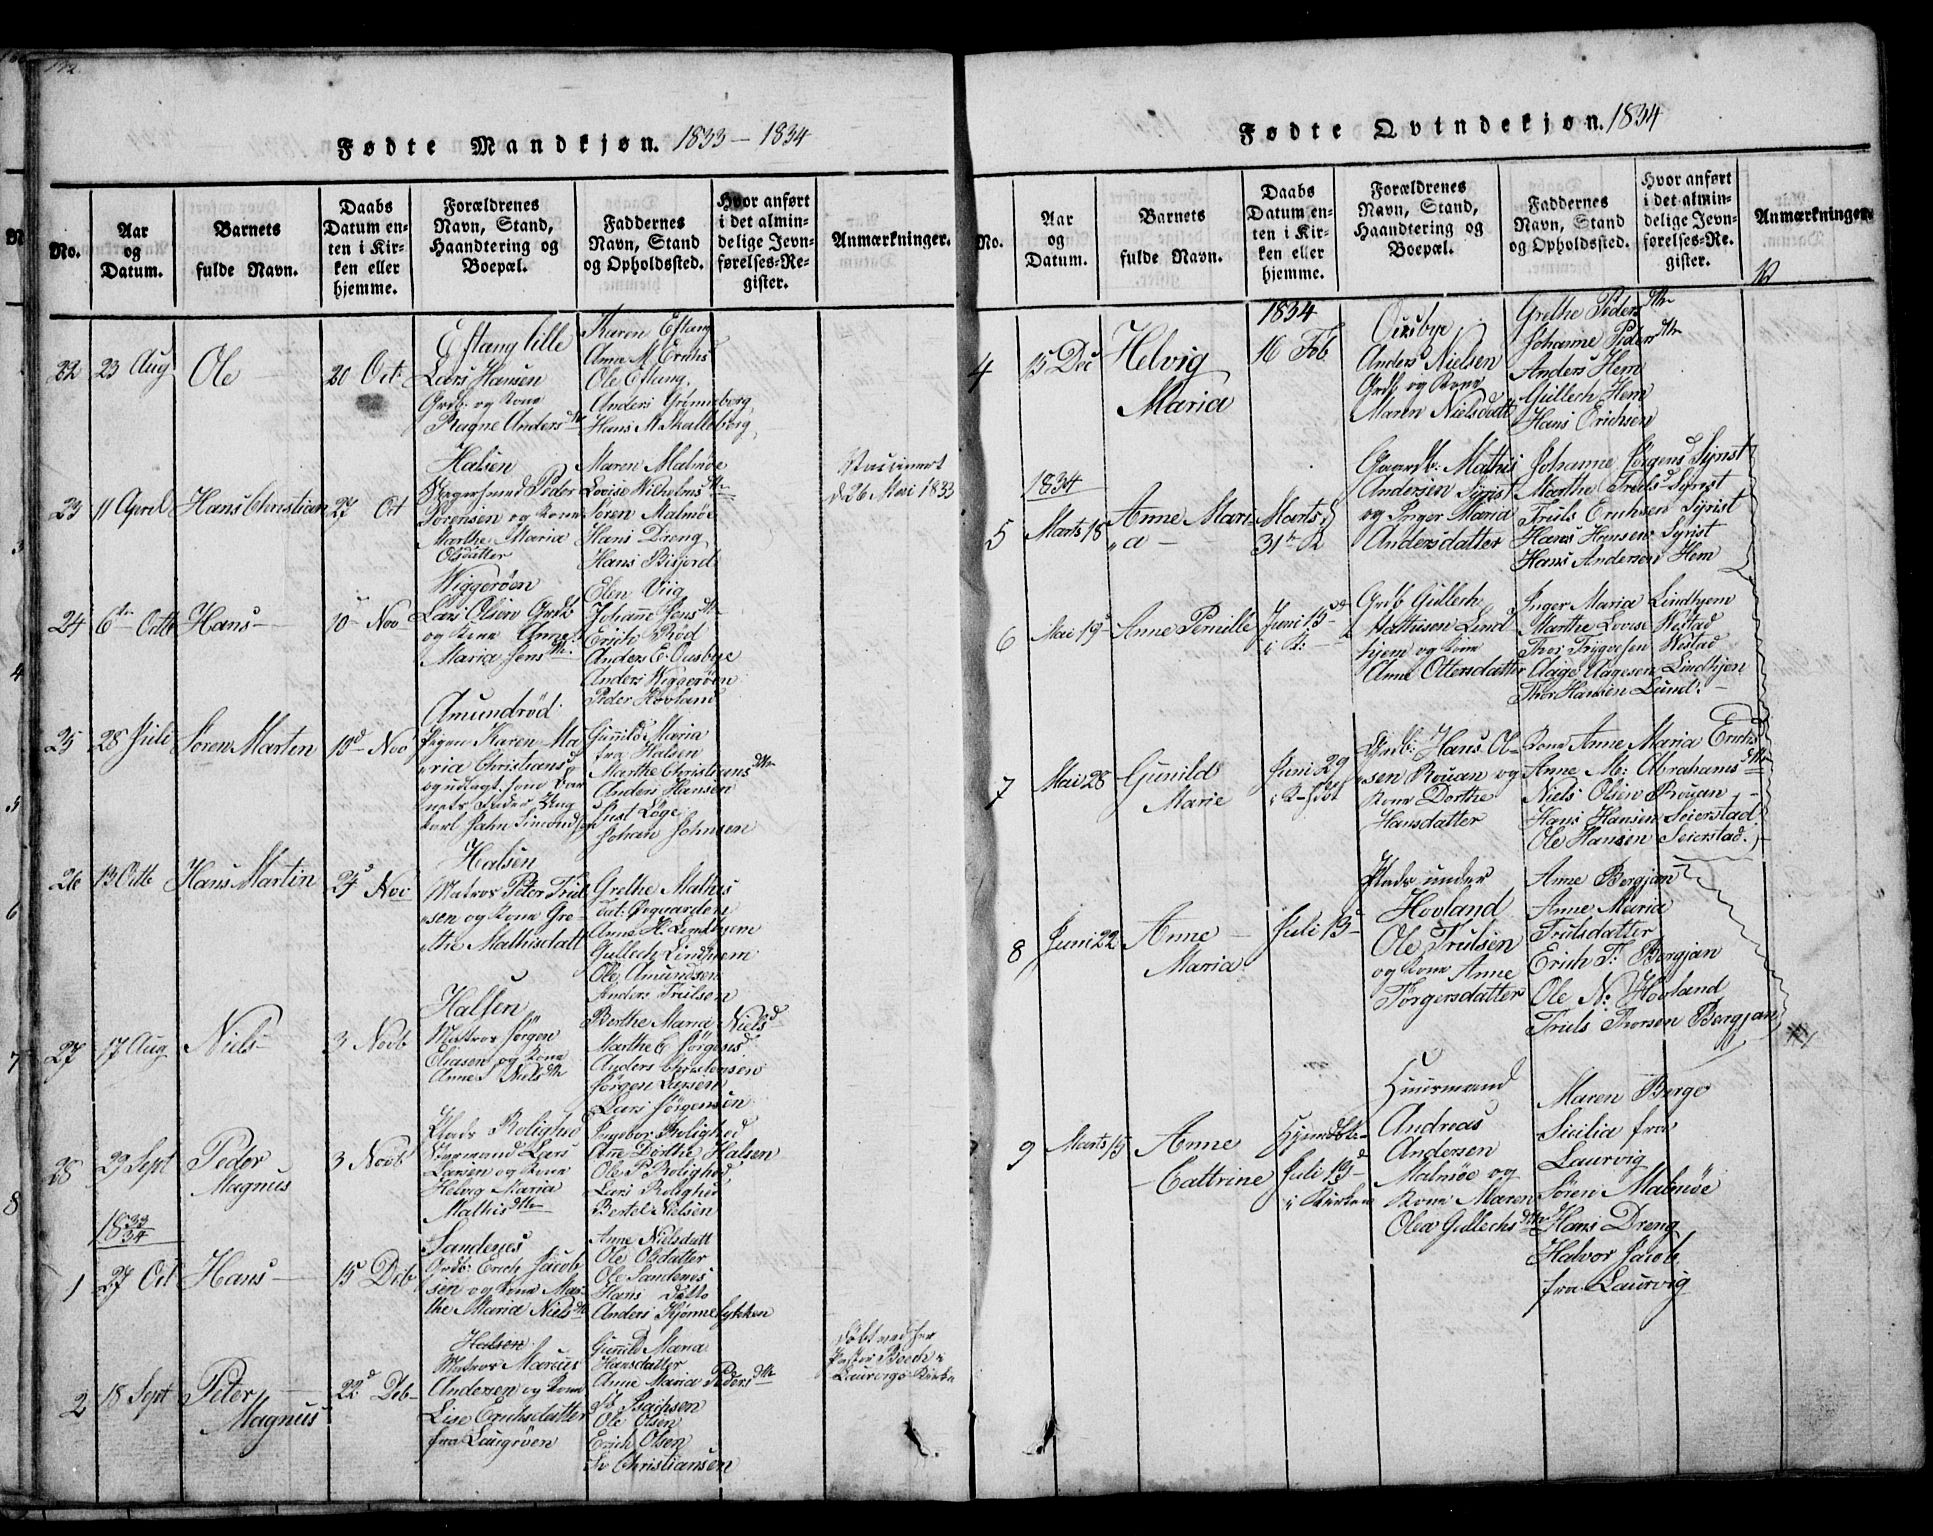 132.
Fødte Mandkjøn. 1833 – 1834
No.
Aar
og
Datum.
Barnets
fulde Navn.
Daabs
Datum en-
ten i Kir-
ken eller
hjemme.
Forældrenes
Navn, Stand,
Haandtering og
Boepæl.
Faddernes
Navn, Stand
og Opholdssted.
Hvor anført
i det almin-
delige Jevn-
førelses-Re-
gister.
Anmærkninger.
22
23 Aug
Ole
20 Oct:
Eftang lille
Lars Hansen
Grdb. og Kone
Ragne Andersdtr
Karen Eftang
Anne M. Erichsd
Ole Eftang.
Anders Grønneberg,
Hans M Skalleberg,
23
11 April
Hans Christian
27 Oct
Halsen
Peder
Sørensen og Kone
Marthe Maria
Olsdatter
Maren Malmøe
Lovise Wilhelmsdtr
Søren Malmøe
Hans Dreng
Hans Bisjord
Vaccineret
d 26 Mai 1833
24
6te Octb
Hans
10 Nov
Wiggerøen
Lars Olsen Grdb
og Kone Anne
Maria Jensdtr.
Elen Viig
Johanne Jensdtr
Erich Röd
Anders E. Ousbye
Anders Wiggerøen
Peder Hovland
25
28 Juli
Søren Martin
10d Nov
Amundröd
Pigen Karen Ma
ria Christiansd
og udlagt som Bar
nets Fader Ung
karl John Simonds
Gunild Maria
fra Halsen
Marthe Christiansdtr
Anders Hansen
Just Löge
Johan Johnsen
26
13 Octb
Hans Martin
24d Nov
Halsen
Matros Peter Trul
sen og Kone Gre-
the Mathisdatt
Grethe Mathis
dat: Øvguarden
Anne H. Lindhjem
Gullech Lindhjem
Ole Amundsen
Anders Trulsen
27
17 Aug
Niels
3 Novb
Halsen
Matros Jørgen
Eliasen og Kone
Anne Nielsdtr
Berthe Maria Nielsd
Marthe C Jørgensd
Anders Christensen
Jørgen Larsen
Lars Jørgensen
28
29 Sept
Peder
Magnus
3 Novb
Plads Rolighed
Lars
Larsen og Kone
Helvig Maria
Mathisdtr
Ingebor Rolighed
Ane Dorthe Halsen
Ole P Rolighed
Lars Rolighed
Bertel Nielsen
1833
34
1
27 Oct
Hans
15 Deb
Sandenes
Grdb: Erich Jacob
sen og Kone Mar-
the Maria Nielsdtr
Anne Nielsdatt
Ole Olsdatter
Ole Sandenes
Hans ditto
Anders Hjønnelykken
2
18 Sept
Peter
Magnus
22d Deb
Halsen
Matros Marcus
Andersen og Kone
Lise Erichsdatter
fra Laugröen
Gunild Maria
Hansdatter
Anne Maria Pedersdtr
Isachsen
Ole Olsen
Erich Olsen
Christiansen
döbt ved Her
Pastor i
Laurvigs Kirke
Fødte Qvindekjøn. 1834
No.
Aar
og
Datum.
Barnets
fulde Navn.
Daabs
Datum en-
ten i Kir-
ken eller
hjemme.
Forældrenes
Navn, Stand,
Haandtering og
Boepæl.
Faddernes
Navn, Stand
og Opholdssted.
Hvor anført
i det almin-
delige Jevn-
førelses-Re-
gister.
Anmærkninger.
4
15 Dec
Helvig
Maria
1834
16 Feb
Ousbye
Anders Nielsen
Grdb og Kone
Maren Nielsdatt
Grethe Pedersdtr
Johanne Pedersdtr
Anders Hem
Gullech Hem
Hans Erichsen
1834
5
Marts 18
Anne Mari-
a –
Marts
31te K
Gaardb: Mathis
Andersen Syrist
og Inger Maria
Andersdatter
Johanne Jørgensd Syrist
Marthe Truls Syrist
Truls Erichsen Syrist
Hans Hansen Syrist
Hans Andersen Hem
6
Mai 19d
Anne Pernille
Juni 15d
i K:
Grdb Gullech
Mathisen Lind
hjem og Kone
Anne Ottersdatter
Inger Maria Lindhjem
Marthe Lovise Westad
Thor Trygvesen Westad
Aage Aagesen Lindhjem
Thor Hansen Lund. –
7
Mai 28
Gunild
Marie
Juni 29
i K
Grdb: Hans Ol-
sen Rouan og
Kone Dorthe
Hansdatter
Kone Anne Maria Erichsdtr
Anne M: Abrahamsdtr
Niels Olsen Rouan
Hans Hansen Seierstad
Ole Hansen Seierstad.
8
Juni 22
Anne
Maria
Juli 13d
Plads under
Hovland
Ole Trulsen
og Kone Anne
Törgersdatter
Anne Bergjan
Anne Maria
Trulsdatter
Erich T: Bergjan
Ole N: Hovland
Truls Thorsen Bergjan
9
Marts 15
Anne
Cattrine
Hjemdöbt
Juli 13d
i Kirken
Huusmand
Andreas
Andersen
Malmöe og
Kone Maren
Olea Gullechsdtr
Maren Berge
Sicilia fra
Laurvig
Søren Malmöe
Hans Dreng
Halvor Jacob
fra Laurvig